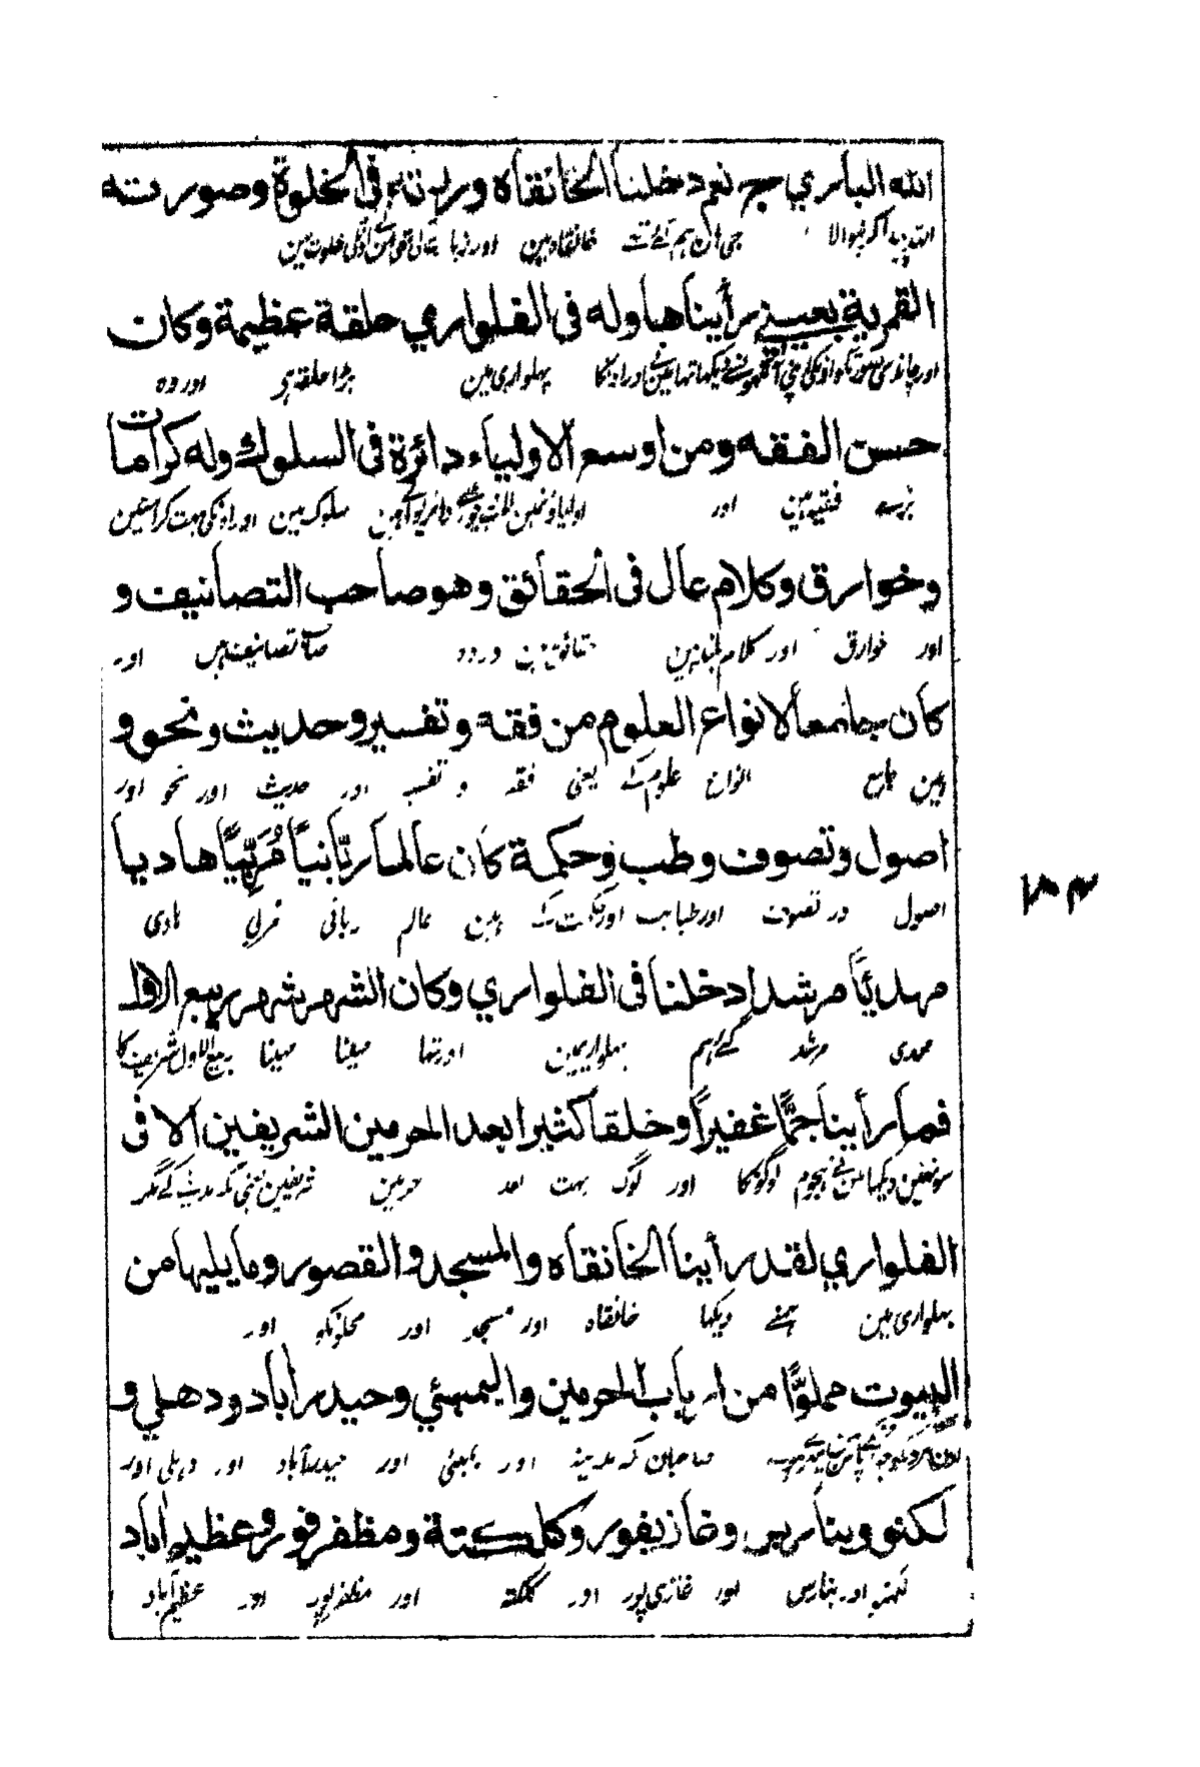 الله الباري جح نعم دخلنا الخانقاه وزيارته في الخلوة وصورته
الله پیدا کرنیوالا جی ہان ہم آئے تھے خانقاہ مین اور خلوت مین
القمرية بعيني رأيناها وله في الفلواري حلقة عظيمة وكان
پہلواری مین بڑا حلقہ ہی اور وہ
حسن الفقه ومن اوسع الاولياء دائرة في السلوك وله كرامات
بڑے فقیہ ہین اور سلوک مین اور اونکی بہت کرامتین
وخوارق وكلام عال في الحقائق وهو صاحب التصانيف و
اور خوارق اور کلام حقائق مین صاحب تصانیف ہین اور
كان جامعا لانواع العلوم من فقه وتفسير وحديث ونحو و
ہین جامع انواع علوم کے یعنی فقہ و تفسیر اور حدیث اور نحو اور
اصول وتصوف وطب وحكمة كان عالما ربّانيا مُربّيًا هاديا
اصول اور تصوف اور طبابت اور حکمت کے ہین عالم ربانی مربی ہادی
مهديًّا مرشدا دخلنا في الفلواري وكان الشهر شهر ربيع الاول
مهدی مرشد گئے ہم پہلواریمین اور تہا مہینا مہینا ربیع الاول شریف کا
فما رأينا جمًّا غفيرًا وخلقا كثيرا بعد الحرمين الشريفين الا في
سو نہین دیکہا ہمنے ہجوم لوگونکا اور لوگ بہت بعد حرمین شریفین یعنی مکہ مدینے کے مگر
الفلواري لقد رأينا الخانقاه والمسجد والقصور وما يليها من
پہلواری مین ہمنے دیکہا خانقاہ اور مسجد اور محلونکو اور
البيوت مملوًّا من ارباب الحرمين والبمبئي وحيدر اباد ودهلي و
صاحبان مکہ مدینہ اور بمبئی اور حیدرآباد اور دہلی اور
لكنو وبنارس وغازيفور وكلكتة ومظفرفور وعظيم اباد
لکہنو اور بنارس اور غازی پور اور کلکتہ اور مظفرپور اور عظیم آباد
۱۸۴